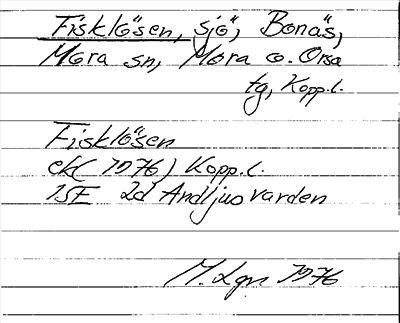 Fisklösen, sjö, Bonäs,
Mora sn, Mora o. Orsa
tg, Kopp.l.
Fisklösen
ek( 1976) Kopp.l.
15E 2d Andljusvarden
M. Lgn 1976